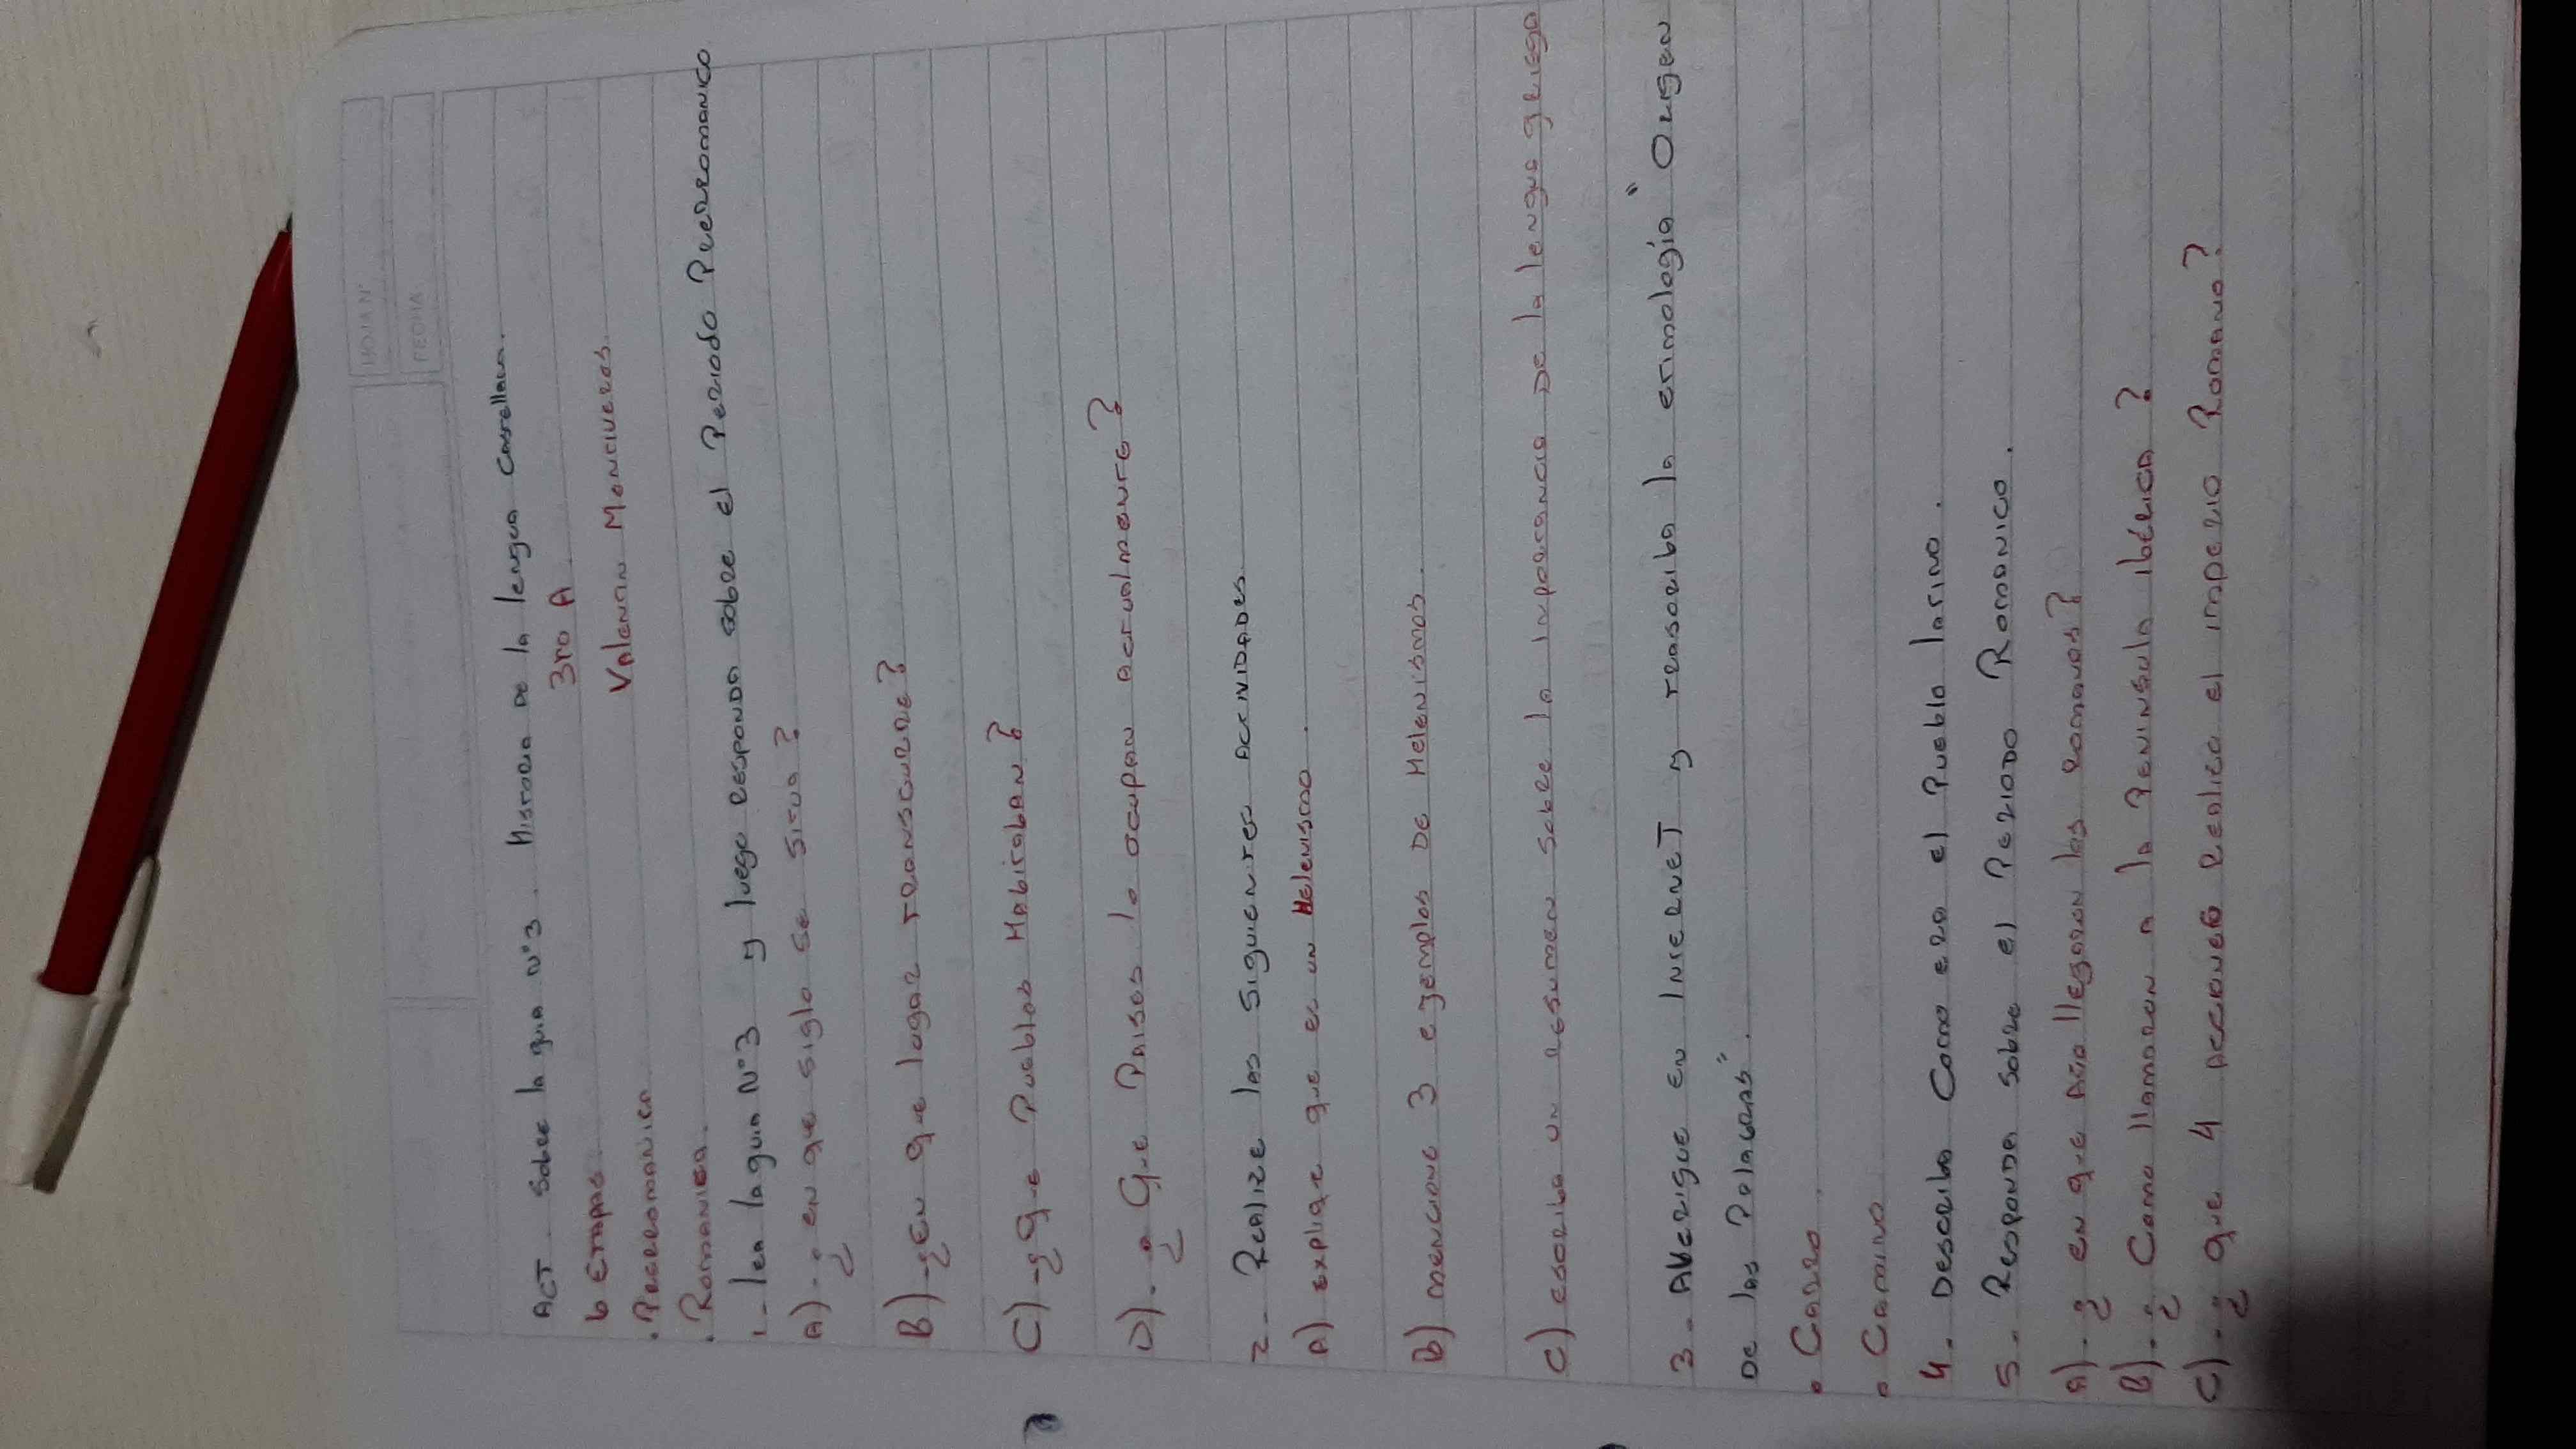 HOJA N°
FECHA
ACT. Sobre la guia N°3. Historia de la lengua Castellana.
6 Etapas. 3ro A
. Prerromanica Valentin Montiveros.
. Romanica.
1- lea la guia N°3 y luego responda sobre el Periodo Prerromanico
A)-¿ en que siglo se situa?
B)-¿En que lugar transcurre?
C)-¿Que Pueblos Habitaban?
D)-¿ Que Paises lo ocupan actualmente?
2- Realize las siguientes actividades.
A) explique que es un Helenismo.
B) mencione 3 ejemplos de Helenismos.
C) escriba un ressumen sobre la importancia de la lengua griega
3- Aberigue en InternET y trasscriba la etimologia "Origen
de las Palabras".
• Carro.
• Camino
4- Describa Como era el Pueblo latino.
5- Responda sobre el Periodo Romanico.
A)-¿ en que Año llegaron los romanos?
B)-¿ Como llamaron a la Peninsula iberica?
C)-¿ que 4 acciones Realiza el imperio Romano?